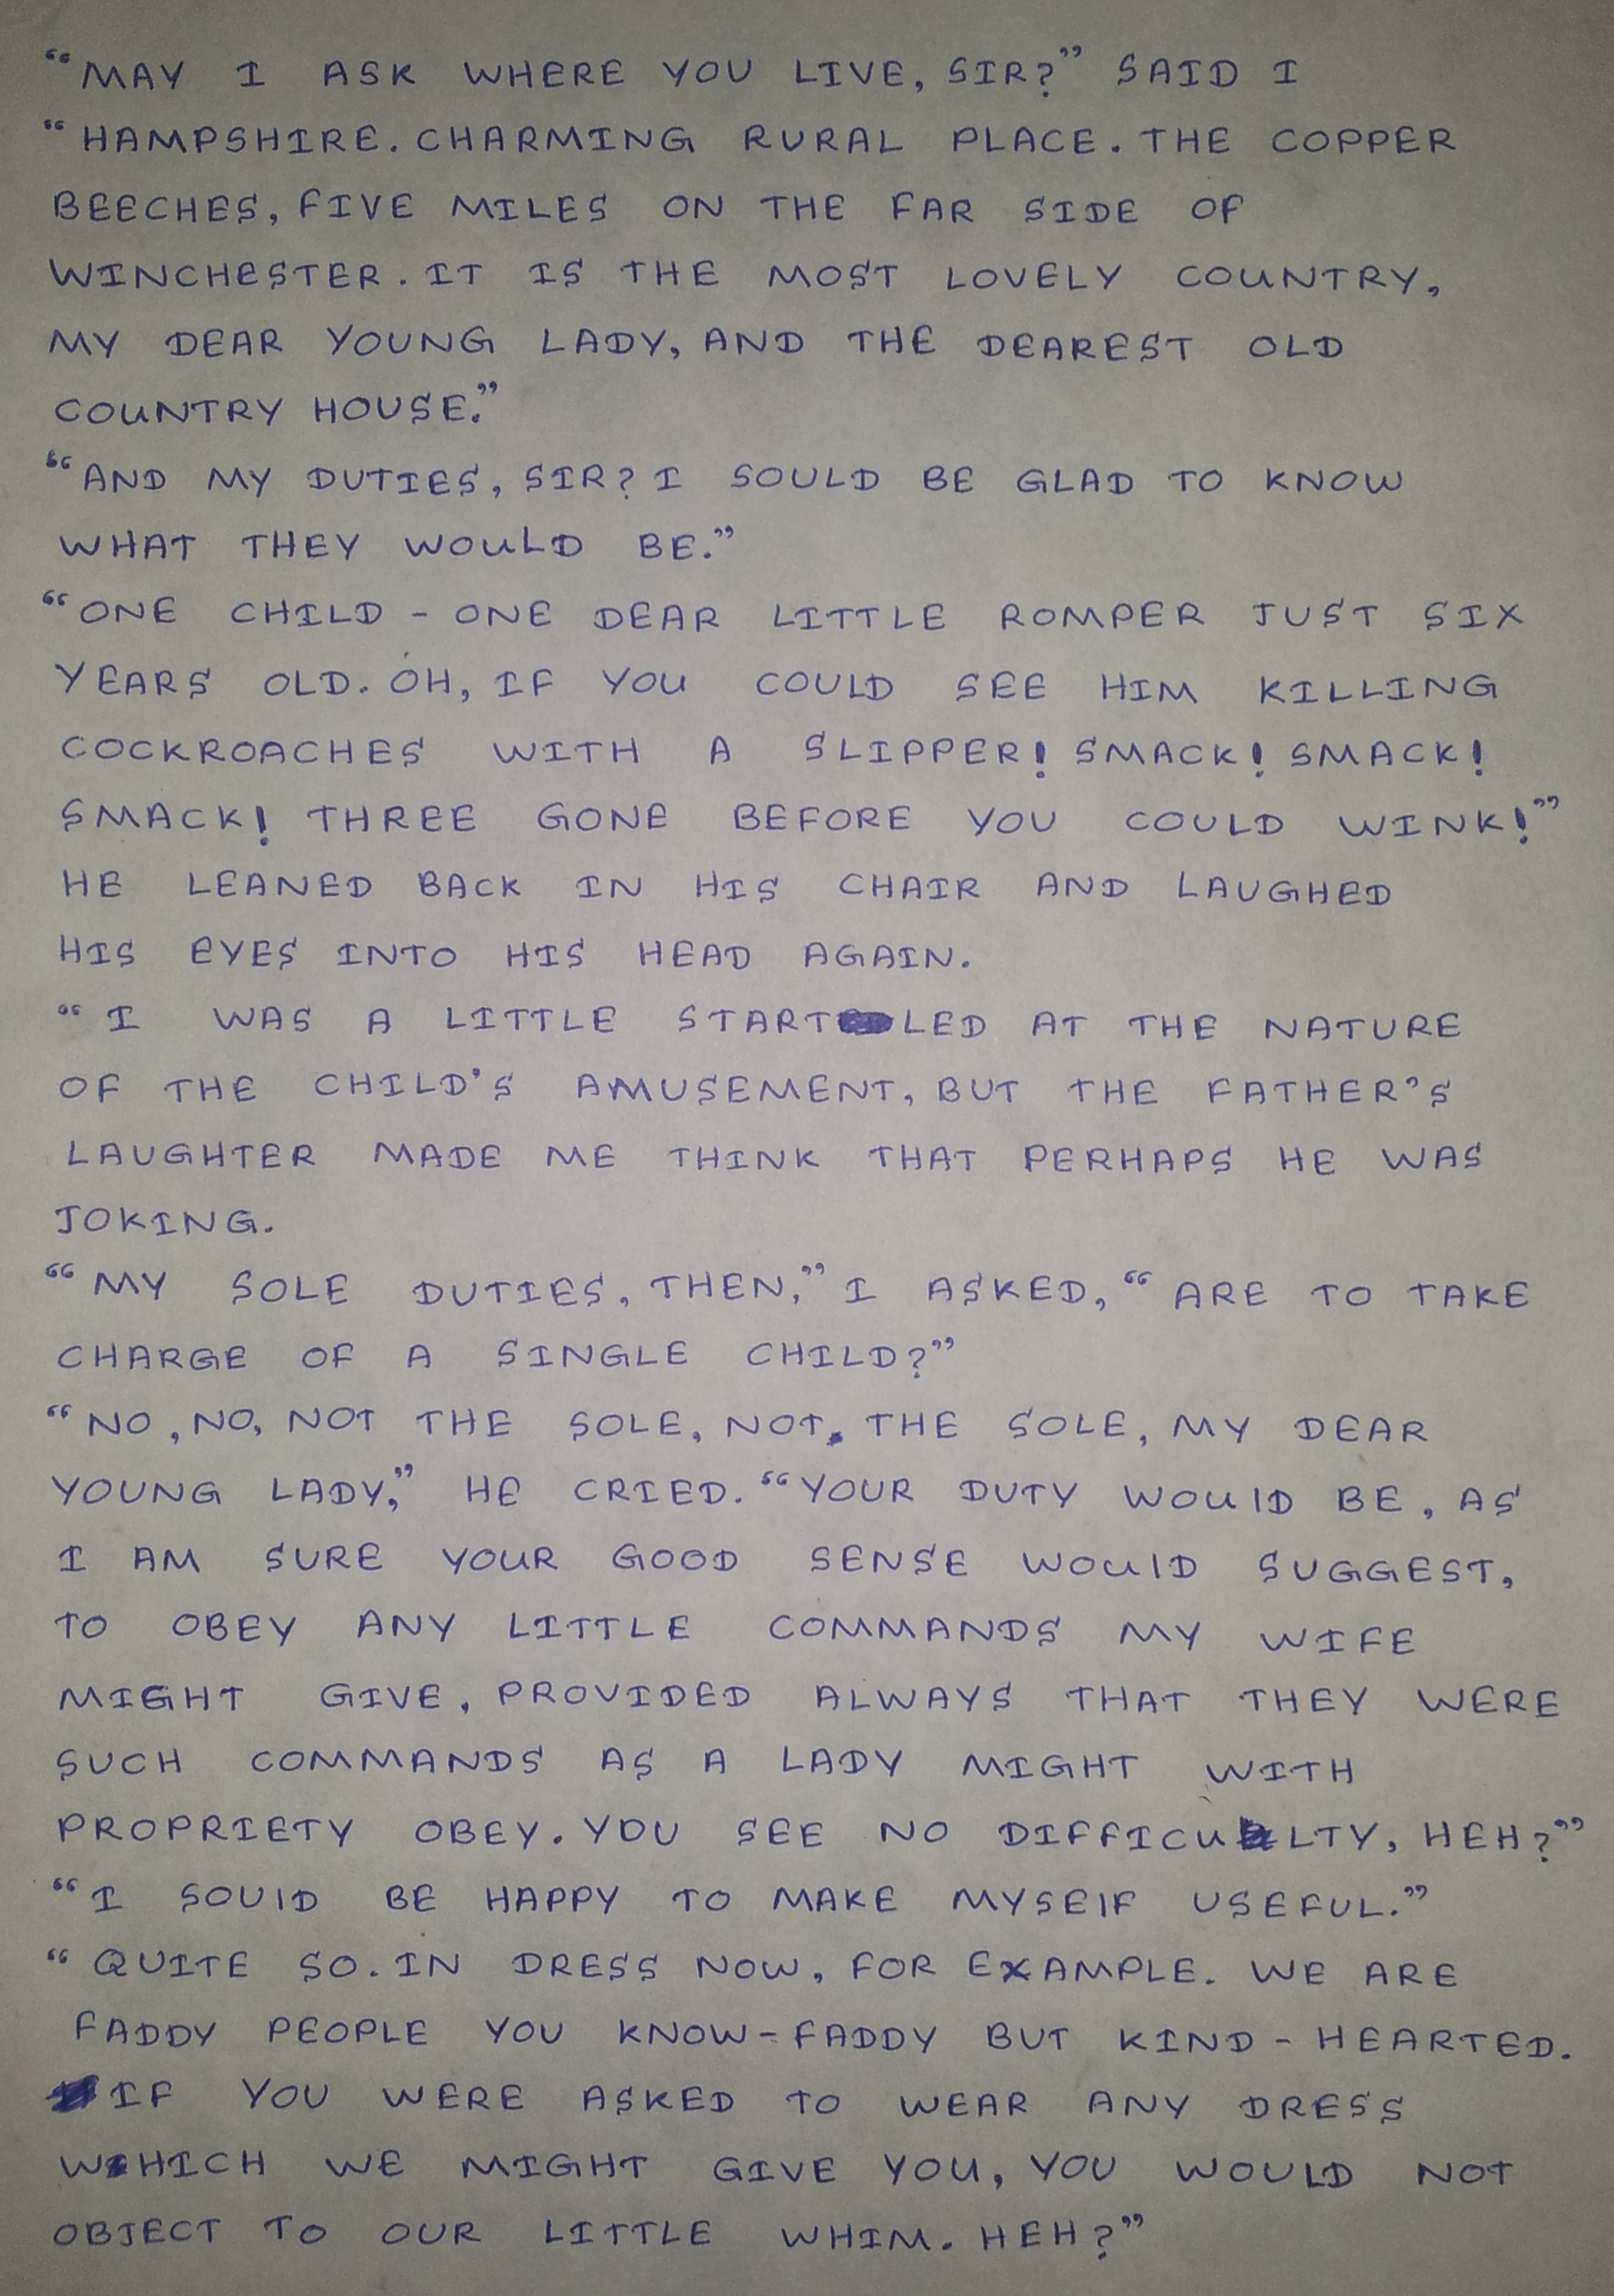 “MAY I ASK WHERE YOU LIVE, SIR?” SAID I
“HAMPSHIRE. CHARMING RURAL PLACE. THE COPPER
BEECHES, FIVE MILES ON THE FAR SIDE OF
WINCHESTER. IT IS THE MOST LOVELY COUNTRY,
MY DEAR YOUNG LADY, AND THE DEAREST OLD
COUNTRY HOUSE.”
“AND MY DUTIES, SIR? I SOULD BE GLAD TO KNOW
WHAT THEY WOULD BE.”
“ONE CHILD - ONE DEAR LITTLE ROMPER JUST SIX
YEARS OLD. OH, IF YOU COULD SEE HIM KILLING
COCKROACHES WITH A SLIPPER! SMACK! SMACK!
SMACK! THREE GONE BEFORE YOU COULD WINK!”
HE LEANED BACK IN HIS CHAIR AND LAUGHED
HIS EYES INTO HIS HEAD AGAIN.
“I WAS A LITTLE STARTLED AT THE NATURE
OF THE CHILD’S AMUSEMENT, BUT THE FATHER’S
LAUGHTER MADE ME THINK THAT PERHAPS HE WAS
JOKING.
“MY SOLE DUTIES, THEN,” I ASKED, “ARE TO TAKE
CHARGE OF A SINGLE CHILD?”
“NO, NO, NOT THE SOLE, NOT, THE SOLE, MY DEAR
YOUNG LADY,” HE CRIED. “YOUR DUTY WOULD BE, AS
I AM SURE YOUR GOOD SENSE WOULD SUGGEST,
TO OBEY ANY LITTLE COMMANDS MY WIFE
MIGHT GIVE, PROVIDED ALWAYS THAT THEY WERE
SUCH COMMANDS AS A LADY MIGHT WITH
PROPRIETY OBEY. YOU SEE NO DIFFICULTY, HEH?”
“I SOULD BE HAPPY TO MAKE MYSELF USEFUL.”
“QUITE SO. IN DRESS NOW, FOR EXAMPLE. WE ARE
FADDY PEOPLE YOU KNOW - FADDY BUT KIND - HEARTED.
IF YOU WERE ASKED TO WEAR ANY DRESS
WHICH WE MIGHT GIVE YOU, YOU WOULD NOT
OBJECT TO OUR LITTLE WHIM. HEH?”